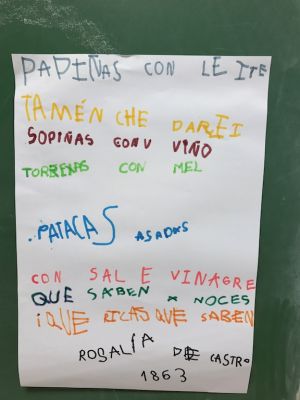 PAPIÑAS CON LEITE
TAMÉN CHE DAREI
SOPIÑAS CONV VIÑO
TORREXAS CON MEL
.PATACAS ASADAS
CON SAL E VINAGRE
QUE SABEN A NOCES
¡QUE RICAS QUE SABEN
ROSALÍA DE CASTRO
1863